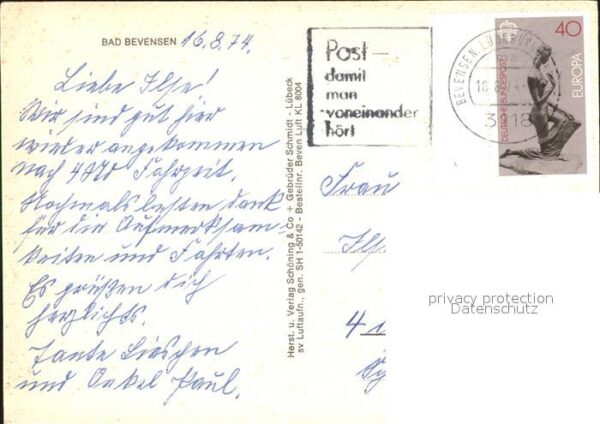 BAD BEVENSEN 16.8.74.
Liebe Ilse!
Wir sind gut hier
wieder angekommen
nach 4 Std Fahrzeit.
Nochmals besten dank
für die Aufmerksam-
keiten und Fahrten.
Es grüßen dich
herzlichst.
Tante Lieschen
und Onkel Paul.
Herst. u. Verlag Schöning & Co + Gebrüder Schmidt - Lübeck
sv Luftaufn., gen. SH 1-50142 - Bestellnr. Beven Luft KL 8004
Post –
damit
man
voneinander
hört
BEVENSEN
DEUTSCHE BUNDESPOST
40
EUROPA
Frau
privacy protection
Datenschutz
4